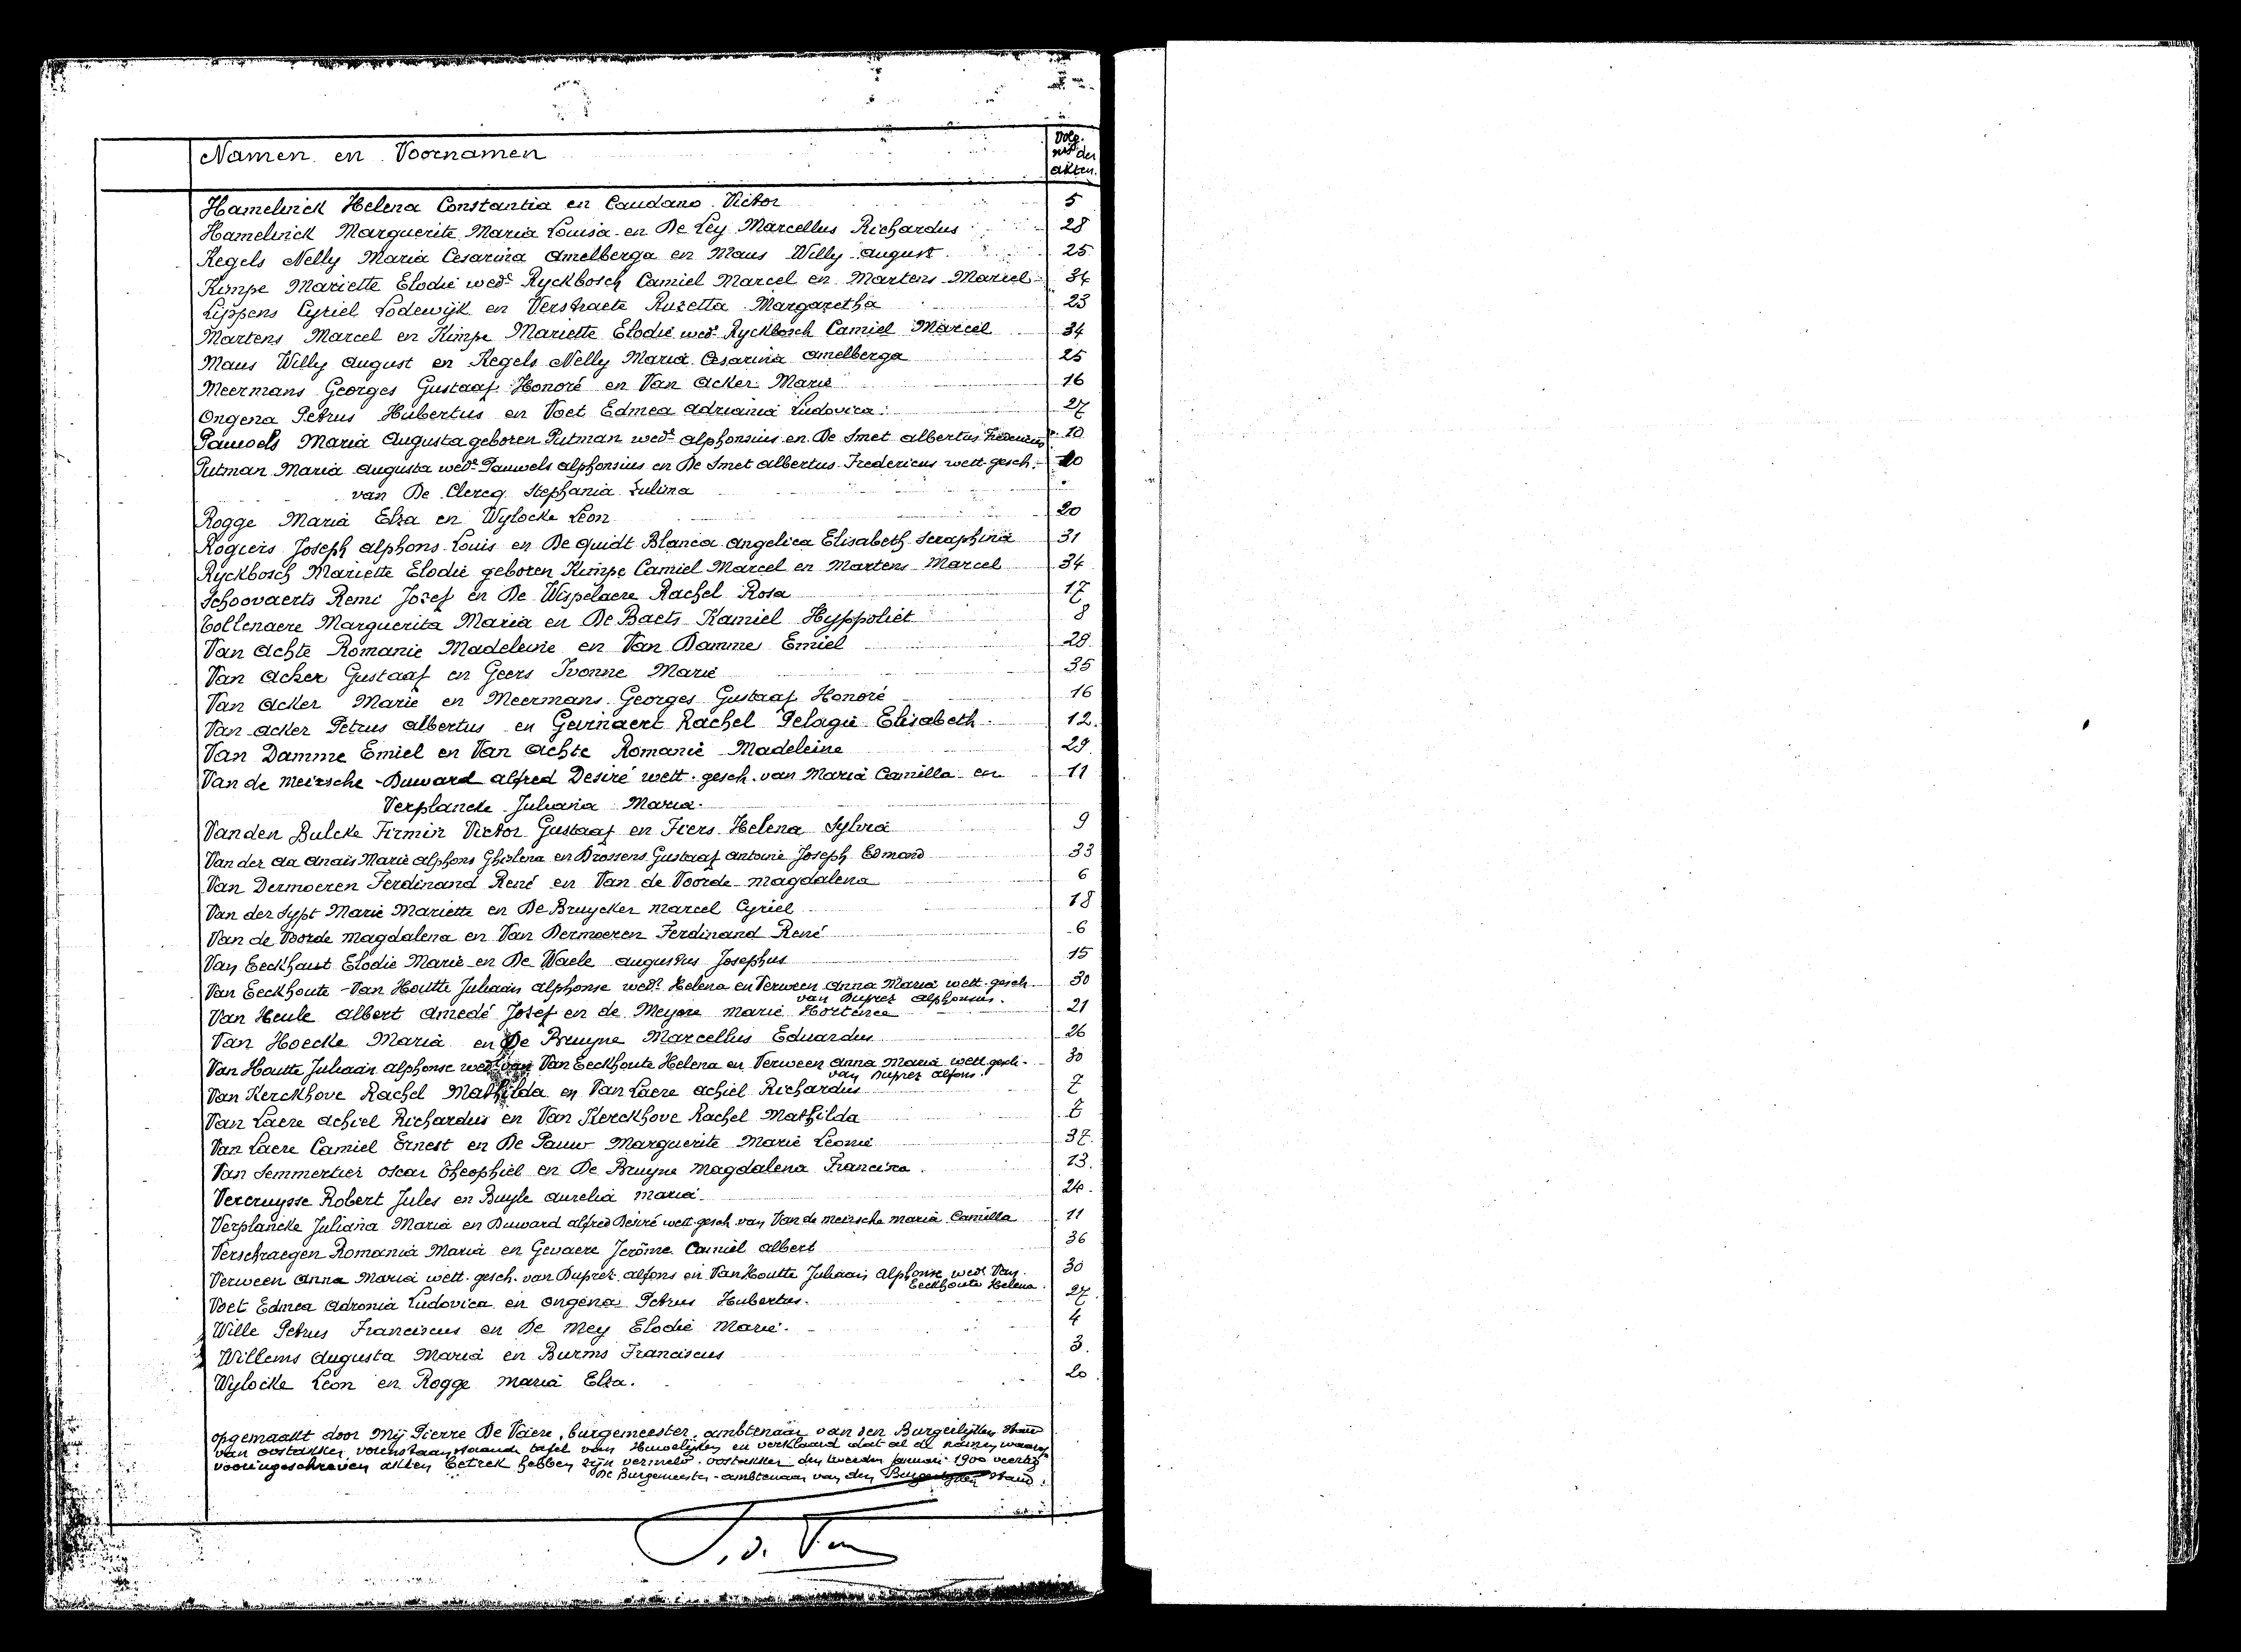 Namen en Voornamen
Volg. nrs der akten.
Hamelinck Helena Constantia en Caudano Victor 5
Hamelinck Marguerite Maria Louisa en De Ley Marcellus Richardus 28
Kegels Nelly Maria Cesarina Amelberga en Maus Willy August 25
Kimpe Mariette Elodie wede Ryckbosch Camiel Marcel en Martens Marcel 34
Lippens Cyriel Lodewijk en Verstraete Ruzetta Margaretha 23
Martens Marcel en Kimpe Mariette Elodie wede Ryckbosch Camiel Marcel 34
Maus Willy August en Kegels Nelly Maria Cesarina Amelberga 25
Meermans Georges Gustaaf Honoré en Van Acker Marie 16
Ongena Petrus Hubertus en Voet Edmea Adriania Ludovica 27
Pauwels Maria Augusta geboren Putman wede Alphonsius en De Smet Albertus Fredericus 10
Putman Maria Augusta wede Pauwels Alphonsius en De Smet Albertus Fredericus wett. gesch. 10
van De Clercq Stephania Zulima
Rogge Maria Elza en Wylocke Leon 20
Rogiers Joseph Alphons Louis en De Quidt Blanca Angelica Elisabeth Seraphina 31
Ryckbosch Mariette Elodie geboren Kimpe Camiel Marcel en Martens Marcel 34
Schoovaerts Remi Jozef en De Wispelaere Rachel Rosa 17
Tollenaere Marguerita Maria en De Baets Kamiel Hyppoliet 8
Van Achte Romanie Madeleine en Van Damme Emiel 29
Van Acker Gustaaf en Geers Ivonne Marie 35
Van Acker Marie en Meermans Georges Gustaaf Honoré 16
Van Acker Petrus Albertus en Gevinaert Rachel Pelagie Elisabeth 12
Van Damme Emiel en Van Achte Romanie Madeleine 29
Van de Meirsche - Duward Alfred Desiré wett. gesch. van Maria Camilla en 11
Verplancke Juliana Maria.
Vanden Bulcke Firmin Victor Gustaaf en Fiers Helena Sylvia 9
Van der Aa Anaïs Marie Alphons Ghislena en Drossens Gustaaf Antoine Joseph Edmond 33
Van Dermoeren Ferdinand René en Van de Voorde Magdalena 6
Van der Sypt Marie Mariette en De Bruycker Marcel Cyriel 18
Van de Voorde Magdalena en Van Dermoeren Ferdinand René 6
Van Eeckhaut Elodie Marie en De Waele Augustus Josephus 15
Van Eeckhoute - Van Houtte Juliaan Alphonse wedr Helena en Verween Anna Maria wett. gesch. 30
van Duprez Alphonsus.
Van Heule Albert Amedé Josef en de Meyere Marie Hortence 21
Van Hoecke Maria en De Bruyne Marcellus Eduardus 26
Van Houtte Juliaan Alphonse wedr van Van Eeckhoute Helena en Verween Anna Maria wett. gesch. 30
van Duprez Alfons.
Van Kerckhove Rachel Mathilda en Van Laere Achiel Richardus 7
Van Laere Achiel Richardus en Van Kerckhove Rachel Mathilda 7
Van Laere Camiel Ernest en De Pauw Marguerite Marie Leonie 37
Van Semmertier Oscar Theophiel en De Bruyne Magdalena Francisca 13
Vercruysse Robert Jules en Buyle Aurelia Maria 24
Verplancke Juliana Maria en Duward Alfred Desiré wett. gesch. van Van de Meirsche Maria Camilla 11
Verschraegen Romania Maria en Gevaere Jerôme Camiel Albert 36
Verween Anna Maria wett. gesch. van Duprez Alfons en Van Houtte Juliaan Alphonse wedr Van 30
Eeckhoute Helena.
Voet Edmea Adronia Ludovica en Ongena Petrus Hubertus. 27
Wille Petrus Franciscus en De Mey Elodie Marie. 4
Willems Augusta Maria en Burms Franciscus 3
Wylocke Leon en Rogge Maria Elza. 20
opgemaakt door Mij Pierre De Vaere, burgemeester, ambtenaar van den Burgerlijken Stand
van Oostakker, vorenstaande tafel van Huwelijken en verklaard dat al de namen waarop
vooringeschreven akten betrek hebben zijn vermeld. Oostakker den tweeden Januari 1900 veertig
De Burgemeester - ambtenaar van den Burgerlijken Stand.